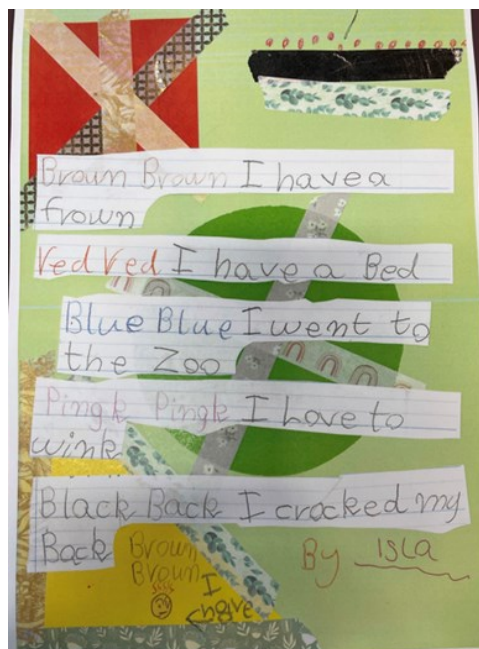 Brown Brown I have a
frown
red red I have a Bed
Blue Blue I went to
the Zoo
Pingk Pingk I love to
wink
Black Back I cracked my
Back
By Isla
Brown
Brown
I
have